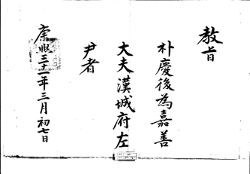 教旨
朴慶後為嘉善
大夫漢城府左
尹者
康熙二十一年三月初七日